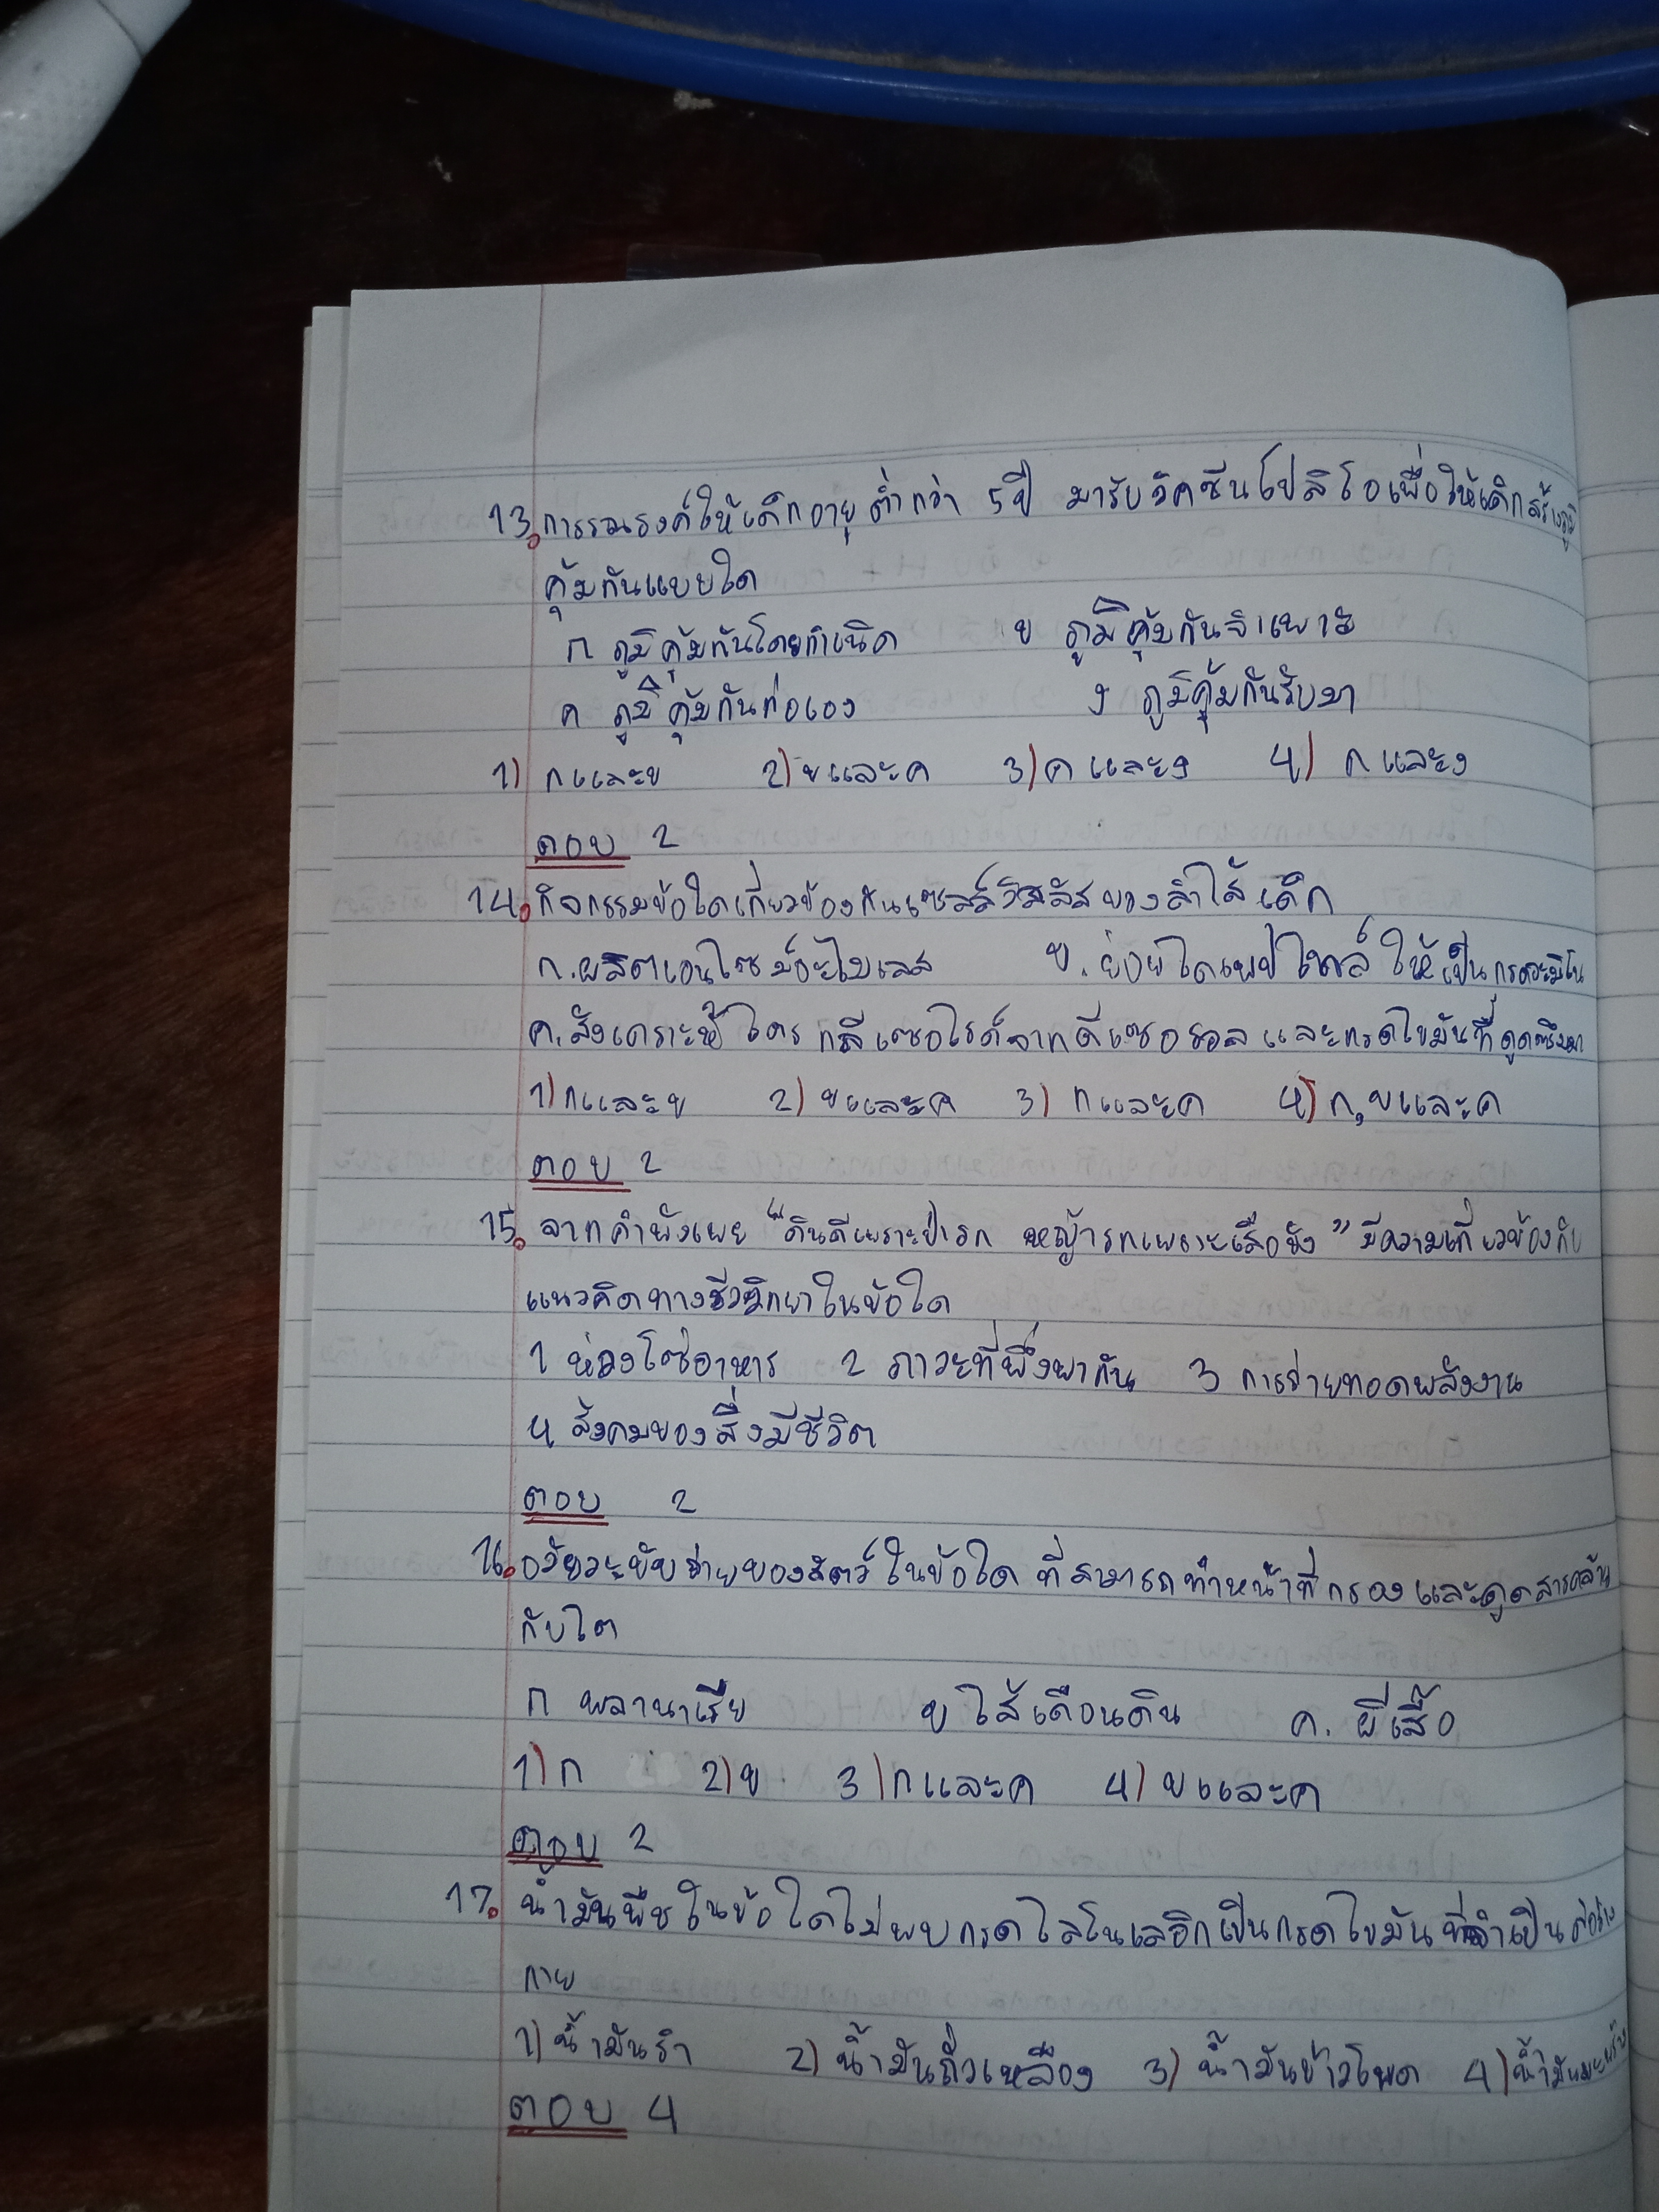 13. การรณรงค์ให้เด็กอายุต่ำกว่า 5 ปี มารับวัคซีนโปลิโอเพื่อให้เด็กสร้างภูมิ
คุ้มกันแบบใด
ก ภูมิคุ้มกันโดยกำเนิด ข ภูมิคุ้มกันจำเพาะ
ค ภูมิคุ้มกันก่อเอง ง ภูมิคุ้มกันรับมา
1) กและข 2) ขและค 3) คและง 4) กและง
ตอบ 2
14. กิจกรรมข้อใดเกี่ยวข้องกับเซลล์วิลลัสของลำไส้เล็ก
ก. ผลิตเอนไซม์อะไมเลส ข. ย่อยไดเพปไทด์ ให้เป็นกรดอะมิโน
ค. สังเคราะห์ไตรกลีเซอไรด์จากกลีเซอรอลและกรดไขมันที่ดูดซึมมา
1) กและข 2) ขและค 3) กและค 4) ก,ขและค
ตอบ 2
15. จากคำพังเพย "ดินดีเพราะป่ารก หญ้ารกเพราะเสือยัง" มีความเกี่ยวข้องกับ
แนวคิดทางชีววิทยาในข้อใด
1 ห่วงโซ่อาหาร 2 ภาวะที่พึ่งพากัน 3 การถ่ายทอดพลังงาน
4 สังคมของสิ่งมีชีวิต
ตอบ 2
16. อวัยวะขับถ่ายของสัตว์ในข้อใด ที่สามารถทำหน้าที่กรองและดูดสารคล้าย
กับไต
ก พลานาเรีย ข ไส้เดือนดิน ค. ผีเสื้อ
1) ก 2) ข 3) กและค 4) ขและค
ตอบ 2
17. น้ำมันพืชในข้อใดไม่พบกรดไลโนเลอิกเป็นกรดไขมันที่จำเป็นต่อร่าง
กาย
1) น้ำมันรำ 2) น้ำมันถั่วเหลือง 3) น้ำมันข้าวโพด 4) น้ำมันมะพร้าว
ตอบ 4